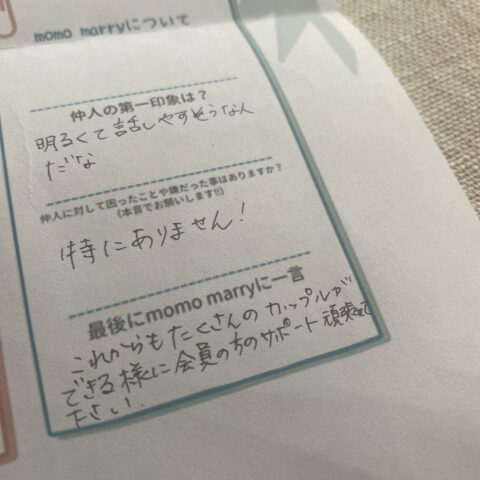 momo marryについて
仲人の第一印象は？
明るくて話しやすそうな人
だな
仲人に対して困ったことや嫌だった事はありますか？
（本音でお願いします!!）
特にありません！
最後にmomo marryに一言
これからもたくさんのカップルが
できる様に会員の方のサポート頑張って
ださい.